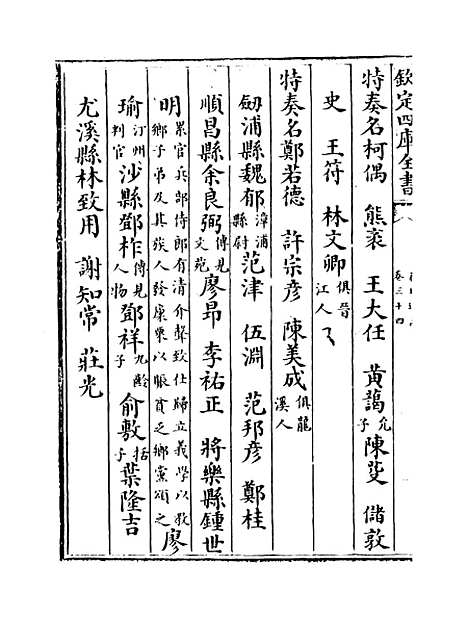 欽定四庫全書
卷三十四
特奏名柯偶 熊袞 王大任 黄藹允子陳斐 儲敦
史 王符 林文卿俱晉江人
特奏名鄭若德 許宗彦 陳美成俱龍溪人
劒浦縣魏郁漳浦縣尉范津 伍淵 范邦彦 鄭桂
順昌縣余良弼傳見文苑廖昂 李祐正 將樂縣鍾世
明累官兵部侍郎有清介聲致仕歸立義學以教鄉子弟及其族人發廪粟以賑貧乏鄉黨頌之廖
瑜汀州判官沙縣鄧柞傳見人物鄧祥九齡子俞敷括子葉隆吉
尤溪縣林致用 謝知常 莊光